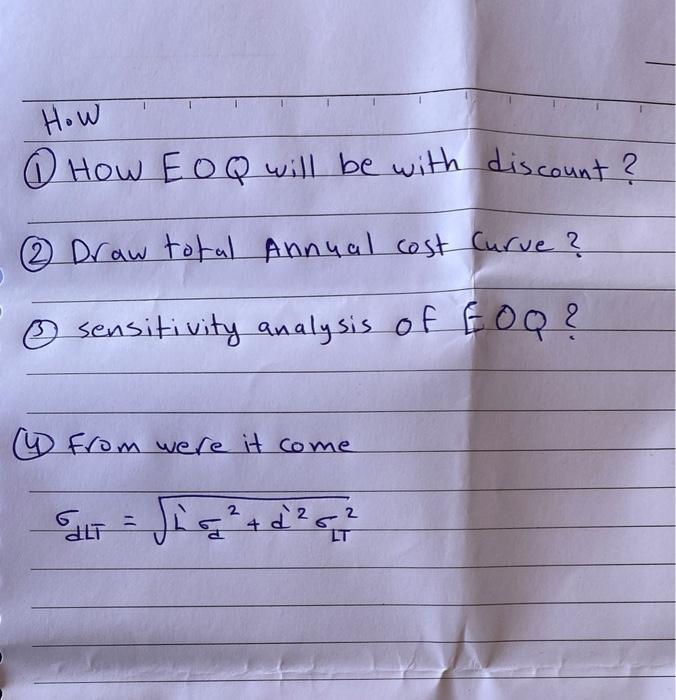 How
① How EOQ will be with discount?
② Draw total Annual cost Curve?
③ sensitivity analysis of EOQ?
④ From were it come
σ_dLT = √(L̀ σ_d² + d̀² σ_LT²)